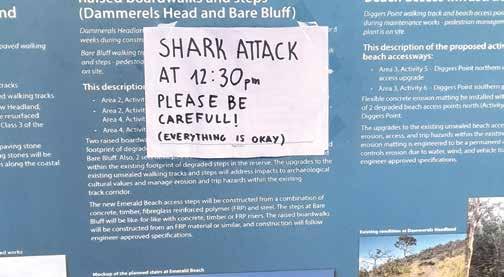 nd
Raised Boardwalks and steps
(Dammerels Head and Bare Bluff)
Dammerels Headla
weeks during constru
Bare Bluff walking tr
and steps - pedestria
on site.
This descriptio
Area 2, Activit
Area 2, Activit
Area 4, Activit
Area 4, Activit
Two raised board
footprint of degrad
Bare Bluff. Also, 2
within the existing footprint of degraded steps in the reserve. The upgrades to the
existing unsealed walking tracks and steps will address impacts to archaeological
cultural values and manage erosion and trip hazards within the existing
track corridor.
The new Emerald Beach access steps will be constructed from a combination of
concrete, timber, fibreglass reinforced polymer (FRP) and steel. The steps at Bare
Bluff will be like-for-like with concrete, timber or FRP risers. The raised boardwalks
will be constructed from an FRP material or similar, and construction will follow
engineer-approved specifications.
Mockup of the planned stairs at Emerald Beach
SHARK ATTACK
AT 12:30pm
PLEASE BE
CAREFULL!
(EVERYTHING IS OKAY)
paved walking
tracks
d walking tracks
w Headland,
e resurfaced
Class 3 of the
paving stone
g stones will be
s along the coastal
ed works
Diggers Point walking track and beach access poi
during maintenance works - pedestrian manageme
plant is on site.
This description of the proposed activ
beach accessways:
Area 3, Activity 5 - Diggers Point northern
access upgrade
Area 3, Activity 6 - Diggers Point southern
Flexible concrete erosion matting be installed with
of 2 degraded beach access points north (Activity
Diggers Point.
The upgrades to the existing unsealed beach acce
erosion, access, and trip hazards within the existi
erosion matting is engineered to be a permanent
controls erosion due to water, wind, and vehicle tr
engineer-approved specifications.
Existing condition at Dammerels Headland